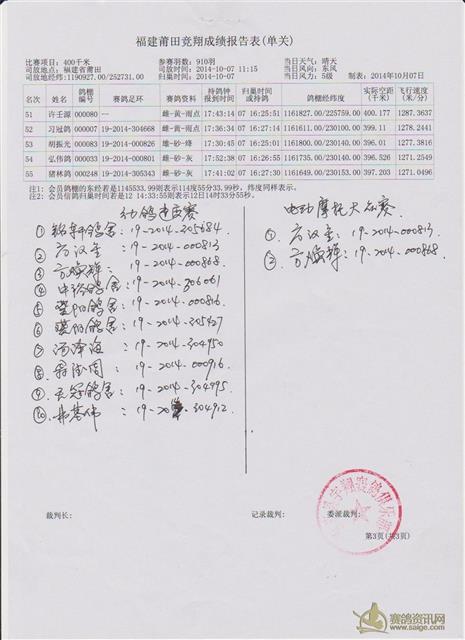 福建莆田竞翔成绩报告表(单关)
比赛项目：400千米 参赛羽数：910羽 当日天气：晴天
司放地点：福建省莆田 司放时间：2014-10-07 11:15 当日风向：东风
司放地经纬：1190927.00/252731.00 归巢时间：2014-10-07 当日风力：5级 制表：2014年10月07日
名次 姓名 鸽棚编号 赛鸽足环 赛鸽资料 持鸽钟报到时间 归巢时间或持鸽 鸽棚经纬度 实际空距(千米) 飞行速度(米/分)
51 许壬源 000080 -- 雌-黄-雨点 17:43:14 07 16:25:51 1161827.00/225759.00 400.177 1287.3637
52 习冠鸽 000007 19-2014-304668 雌-黄-雨点 17:36:14 07 16:27:14 1161811.00/230100.00 399.11 1278.2441
53 胡振光 000083 19-2014-000826 雄-砂-绛 17:30:45 07 16:25:07 1161901.00/230140.00 396.01 1277.3816
54 弘伟鸽 000033 19-2014-000801 雄-砂-灰 17:52:38 07 16:26:55 1161811.00/230140.00 396.526 1271.2549
55 猪林鸽 000045 雌-砂-灰 17:34:41 07 16:27:30 1161649.00/230153.00 397.203 1271.0496
注1：会员鸽棚的东经若是1145533.99则表示114度55分33.99秒。纬度同样表示。
注2：会员信鸽归巢时间若是12 14:33:55则表示12日14时33分55秒。
幼鸽连四赛
①鸽舍：19-2014-305684
②方汉奎：19-2014-000813
③方：19-2014-000868
④鸽舍：19-2014-306061
⑤鸽舍：19-2014-000816
⑥鸽舍：19-2014-305427
⑦汤泽海：19-2014-304950
⑧：19-2014-000916
⑨鸽舍：19-2014-304495
⑩：19-2014-304912
电动摩托大众赛
①方汉奎：19-2014-000813
②方：19-2014-000868
裁判长： 记录裁判： 委派裁判：
第3页(共3页)
赛鸽资讯网
www.saige.com